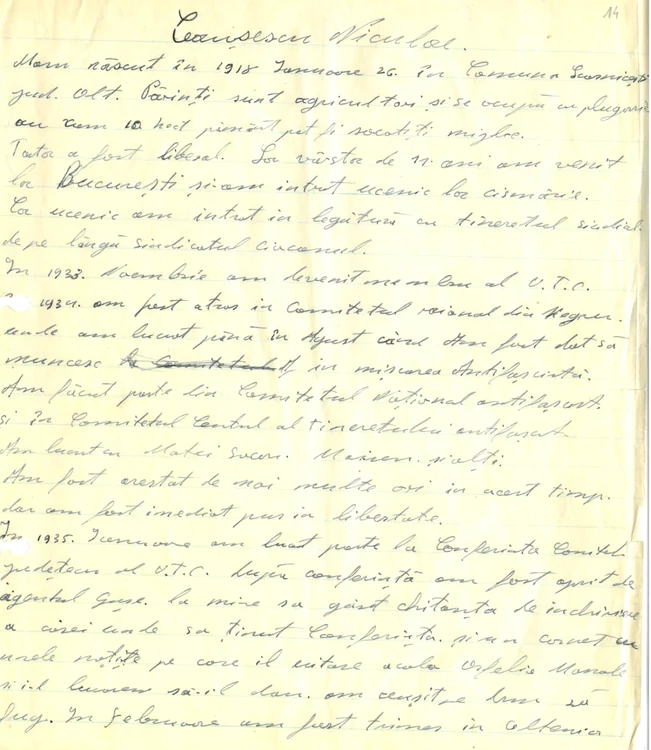 14
Ceaușescu Niculae.
M-am născut în 1918 Ianuarie 26. în Comuna Scornicești
jud. Olt. Părinți sunt agricultori și se ocupă cu plugăria
au cam 10 hect pământ pot fi socotiți mijloc.
Tata a fost liberal. La vârsta de 11 ani am venit
la București și am intrat ucenic la cismărie.
Ca ucenic am intrat in legătură cu tineretul sindical.
de pe lângă sindicatul
In 1933. Noembrie am devenit membru al U.T.C.
1934. am fost atras in Comitetul raional din Negru.
unde am lucrat până în August când Am fost dat să
muncesc in miscarea Antifascistă.
Am făcut parte din Comitetul Național antifascist.
si în Comitetul Central al tineretului antifascist
Am lucrat cu Matei Socor. și alți.
Am fost arestat de mai multe ori in acest timp.
dar am fost imediat pus in libertate.
In 1935. Ianuarie am luat parte la Conferinta Comitet
județean al U.T.C. După conferință am fost oprit de
agentul la mine sa găsit chitanța de inchiriere
a casei unde sa ținut Conferința. și un carnet cu
unele notițe pe care il uitase acolo Ofelia Manole
si il luasem să-il dau. am reușit pe drum să
fug. In februarie am fost trimes in oltenia